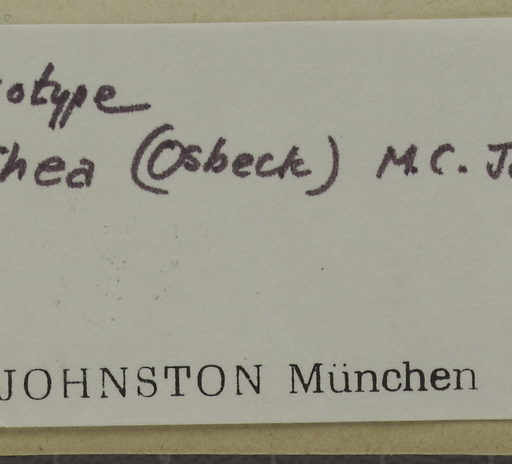 otype
hea (Osbeck) M.C. J
JOHNSTON München